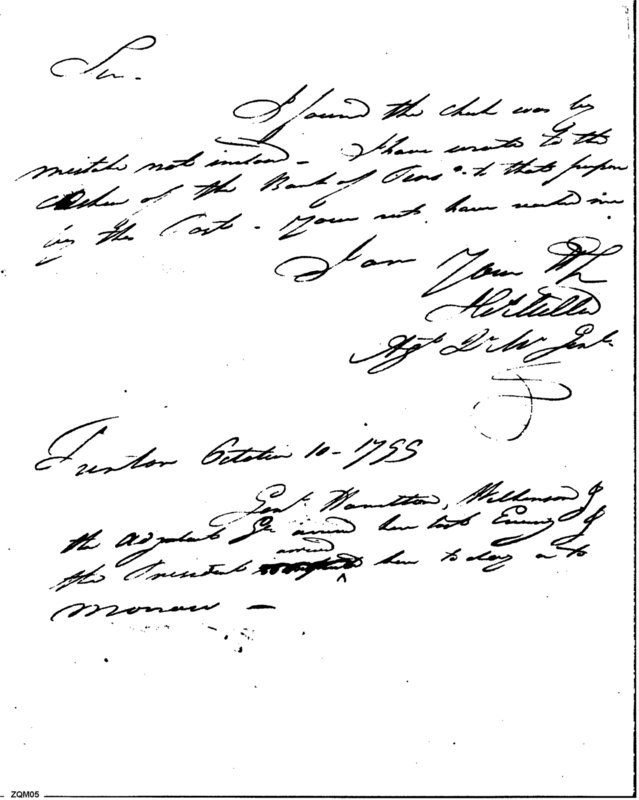 Sir.
I found the check was by
mistake not inclosed - I have wrote to the
Cashier of the Bank of to that purpose
by the Post - Your note have reached me
I am Your
Agt Qr Mr Genl.
Trenton October 10 - 1799
Genl. Hamilton, Wilkinson &
the Adjutant Gl arrived here last Evening &
the President arrived here to day or to
morrow -
ZQM05